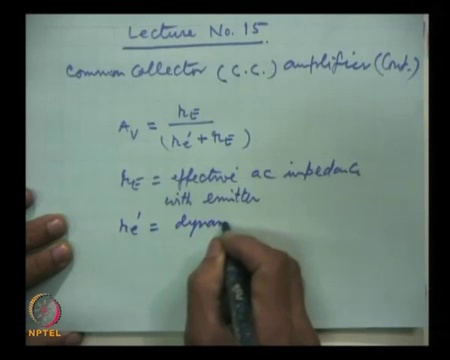 Lecture No. 15.
Common Collector (C.C.) amplifier (Cont.)
Av = rE / (re' + rE)
rE = effective ac impedance
with emitter
re' = dynam
NPTEL